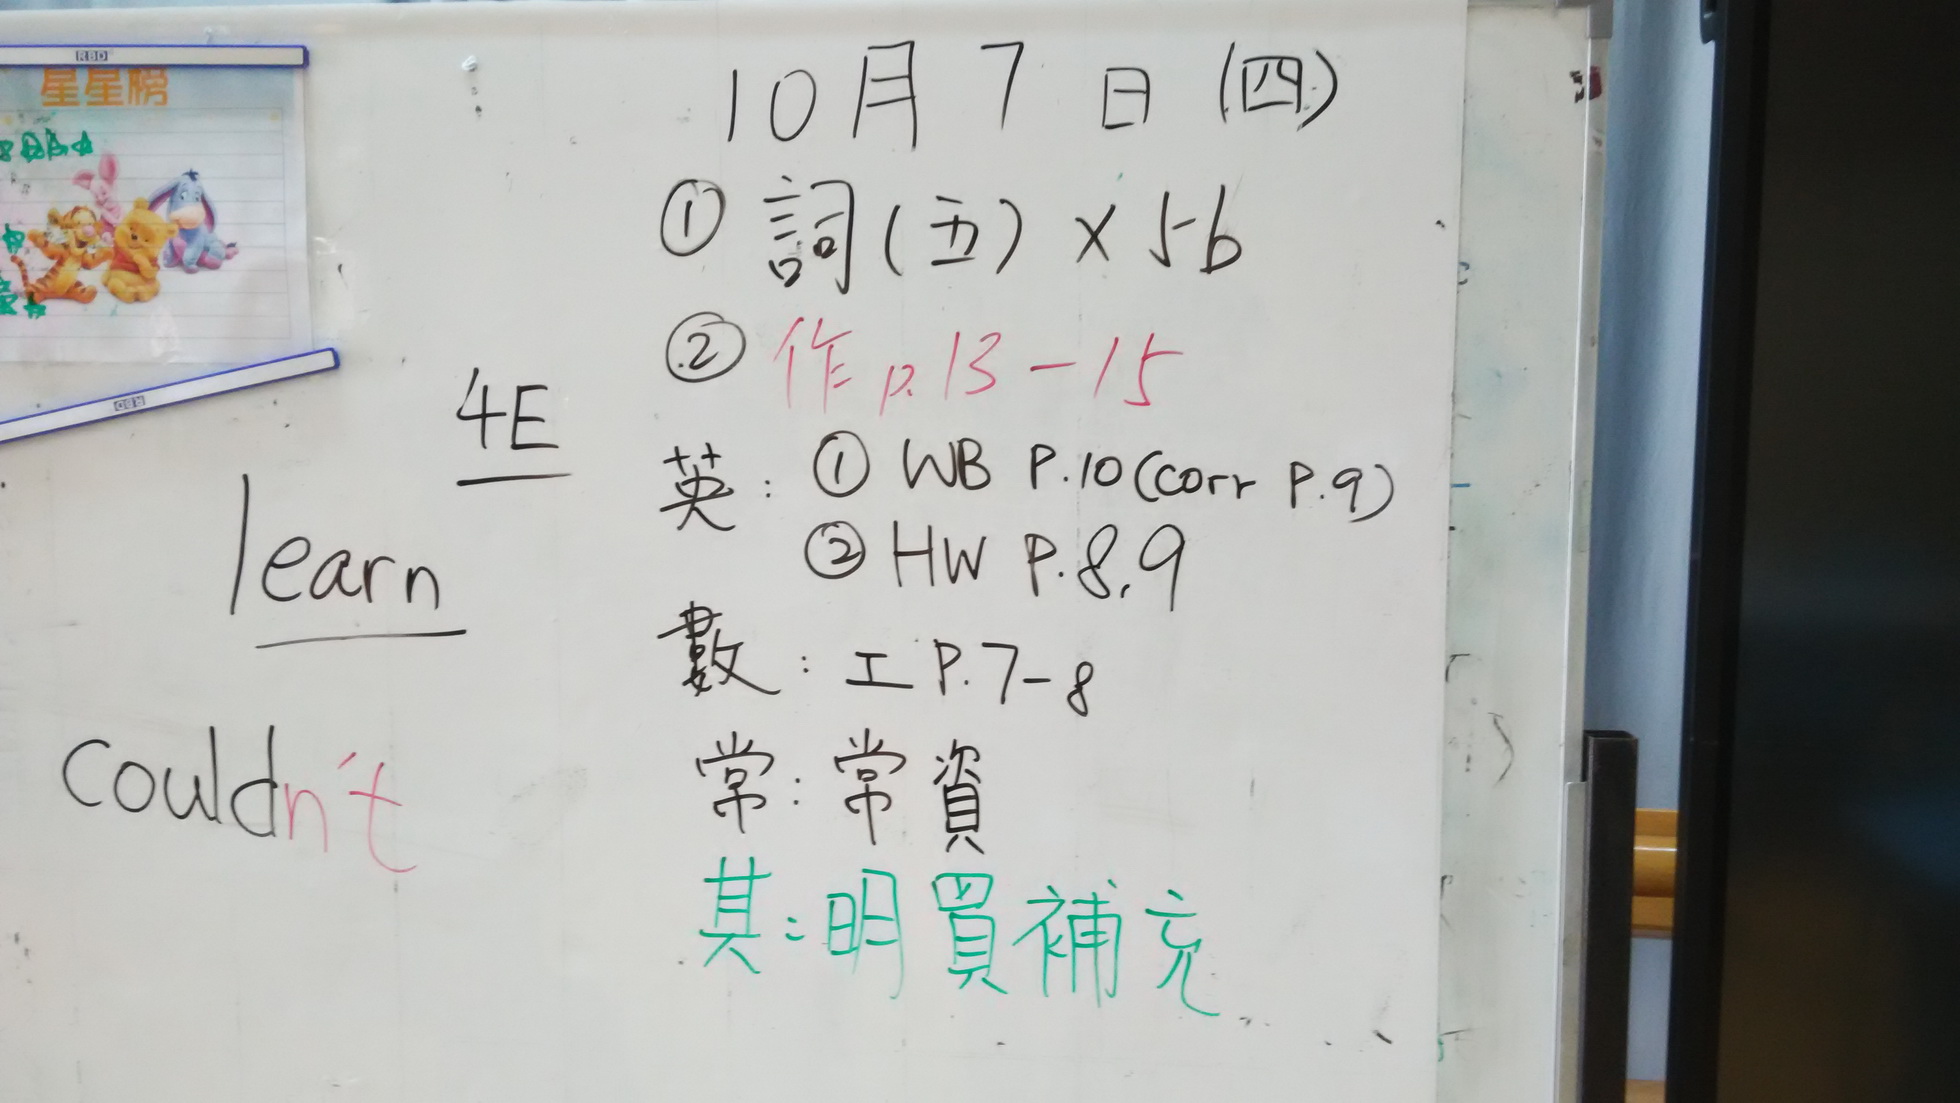 RBD
星星榜
RBD
10月7日(四)
① 詞(五) x 5b
② 作p.13-15
4E
英: ① WB P.10(corr P.9)
② HW P.8,9
learn
數: 工 P.7-8
常: 常資
couldn't
其: 明買補充